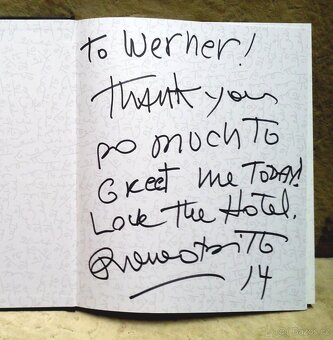 To Werner!
Thank you
so much to
Greet me Today!
Love the Hotel.
14